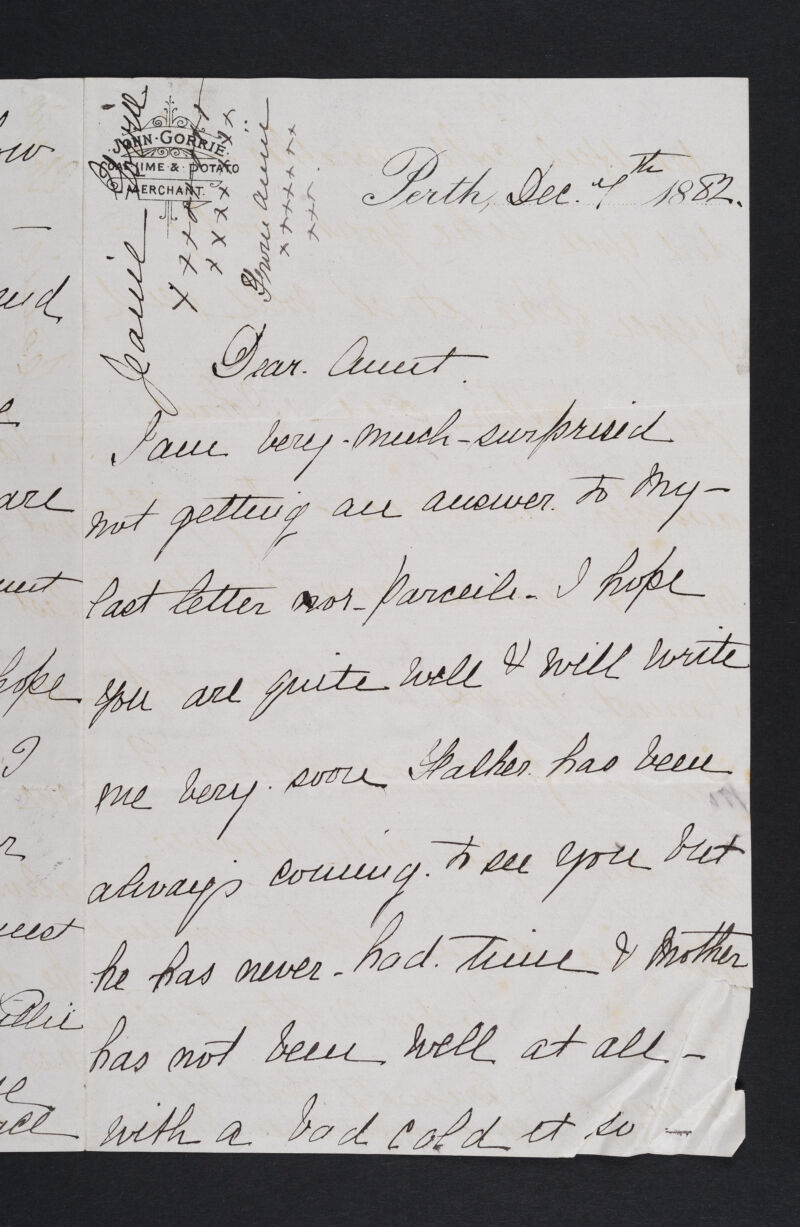 JOHN GORRIE.
COAL, LIME & POTATO
MERCHANT.
Perth, Dec. 7th 1882.
x x x x x x x
x x x x x x x
from Auntie
x x x x x x
x x x .
Dear. Aunt.
I am very-much-surprised
not getting an answer. to my-
last letter nor-parceile- I hope
you are quite well & will write
me very. soon Father. has been
always coming. to see you but
he has never-had. time & Mother
has not been well at all-
with a bad cold it so
ow
—
and
are
hope
I